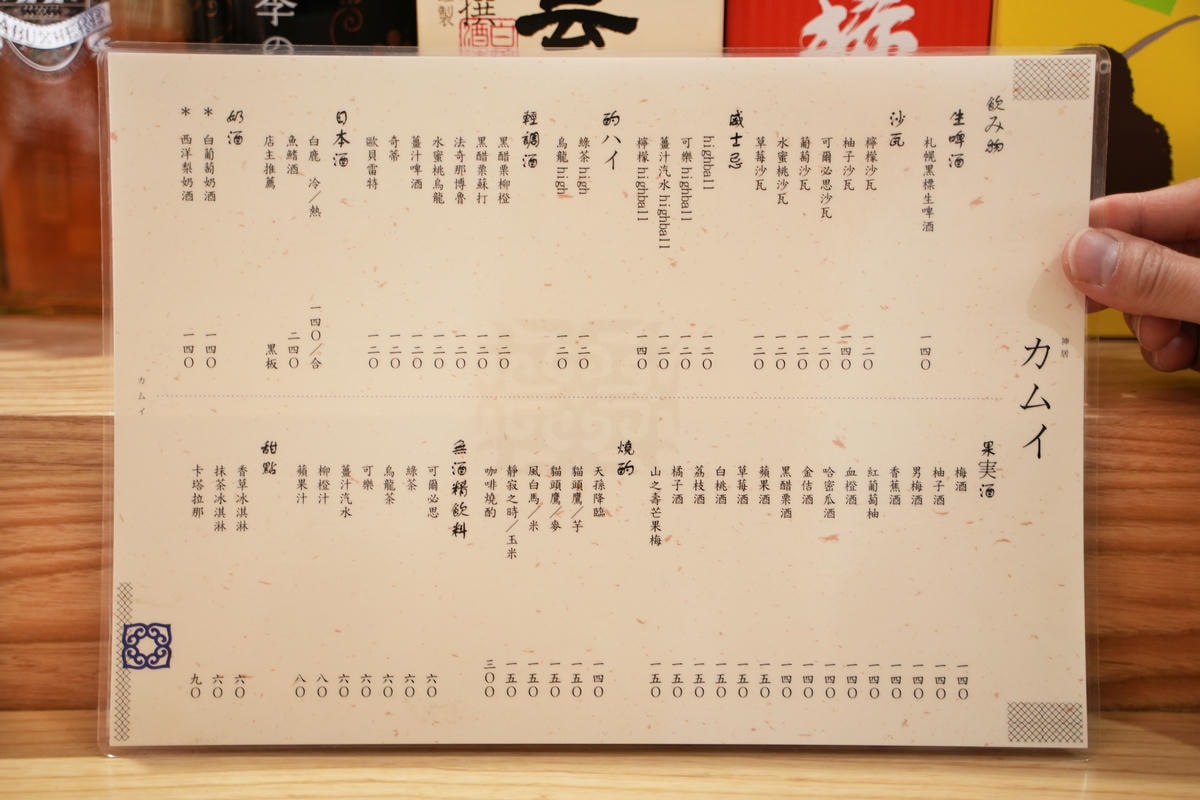 神居
カムイ
飲み物
生啤酒
札幌黑標生啤酒 一四〇
沙瓦
檸檬沙瓦 一二〇
柚子沙瓦 一四〇
可爾必思沙瓦 一二〇
葡萄沙瓦 一二〇
水蜜桃沙瓦 一二〇
草莓沙瓦 一二〇
威士忌
highball 一二〇
可樂 highball 一二〇
薑汁汽水 highball 一二〇
檸檬 highball 一四〇
酎ハイ
綠茶 high 一二〇
烏龍 high 一二〇
輕調酒
黑醋栗柳橙 一二〇
黑醋栗蘇打 一二〇
法奇那博魯 一二〇
水蜜桃烏龍 一二〇
薑汁啤酒 一二〇
奇蒂 一二〇
歐貝雷特 一二〇
日本酒
白鹿 冷／熱 一四〇／合
魚鰭酒 二四〇
店主推薦 黑板
奶酒
* 白葡萄奶酒 一四〇
* 西洋梨奶酒 一四〇
果実酒
梅酒 一四〇
柚子酒 一四〇
男梅酒 一四〇
香蕉酒 一四〇
紅葡萄柚 一四〇
血橙酒 一四〇
哈密瓜酒 一四〇
金佶酒 一四〇
黑醋栗酒 一四〇
蘋果酒 一五〇
草莓酒 一五〇
白桃酒 一五〇
荔枝酒 一五〇
橘子酒 一五〇
山之壽芒果梅 一五〇
燒酎
天孫降臨 一四〇
貓頭鷹／芋 一五〇
貓頭鷹／麥 一五〇
風白馬／米 一五〇
靜寂之時／玉米 一五〇
咖啡燒酌 三〇〇
無酒精飲料
可爾必思 六〇
綠茶 六〇
烏龍茶 六〇
可樂 六〇
薑汁汽水 六〇
柳橙汁 八〇
蘋果汁 八〇
甜點
香草冰淇淋 六〇
抹茶冰淇淋 六〇
卡塔拉那 九〇
カムイ